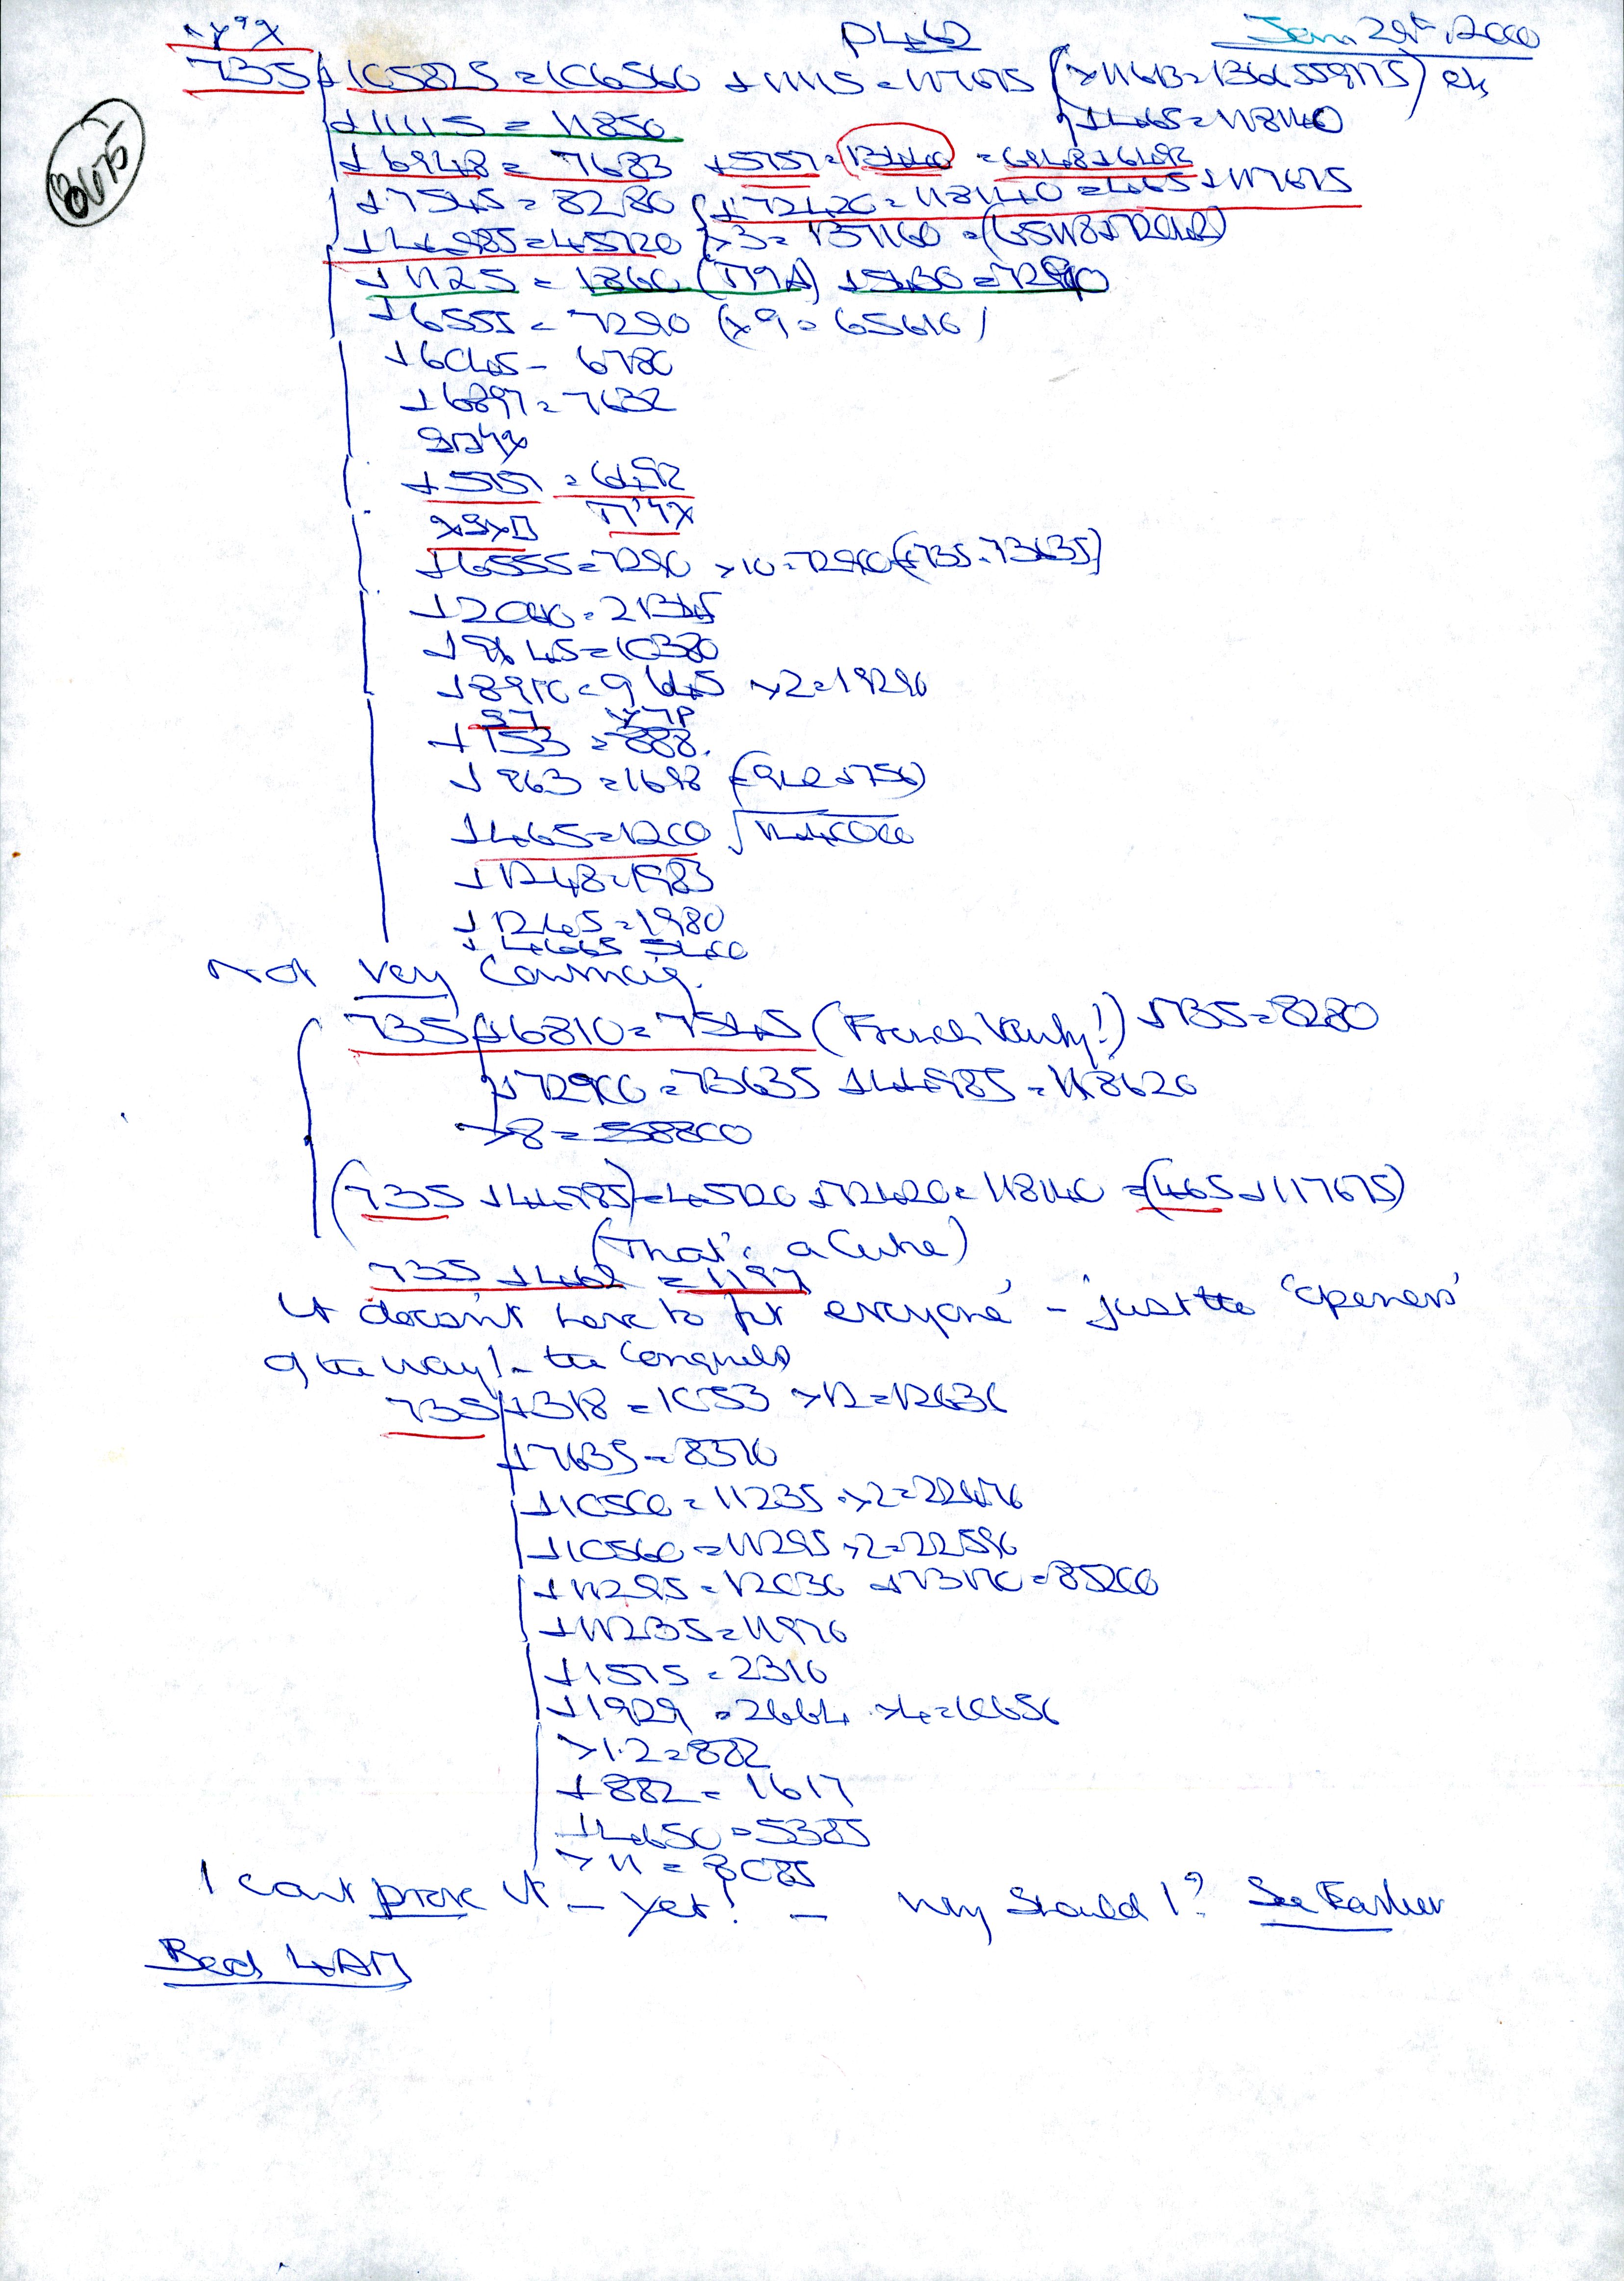 p462 Jan 29th 2000
8675
735 + 105825 = 106560 + 11115 = 117675 (×11613=1366559775) etc
+11115 = 11850 +465=118140
+6948 = 7683 +5757=13440 =6948+6492
+7545=8280 +72420=118140=465+117675
+44985=45720 ×3=137160 =(65118+72042)
+1125 = 1860 +5430=7290
+6555= 7290 (×9=65610)
+6045= 6780
+6897=7632
+5757 =6492
+6555=7290 ×10=72900(+735=73635)
+20610=21345
+9645=10380
+8910=9645 ×2=19290
+153 =888.
+963 =1698
+465=1200
+1248=1983
+1245=1980
+4665 5400
Not very convincing.
735 +6810=7545 (French Vanity!) +735=8280
+72900=73635 +44985=118620
×8= 5880
(735 +44985)=45720+72420=118140 =(465+117675)
(That's a Cutie)
735 +462 =1197
It doesn't have to fit 'everyone' - just the 'openers'
of the way! - the Conquerors
735 +318 =1053 ×12=12636
+7635=8370
+10500=11235 ×2=22470
+10560=11295 ×2=22590
+11295=12030 +73170=85200
+11235=11970
+1575=2310
+1929 =2664 ×4=10656
×1.2=882
+882= 1617
+4650=5385
×11 = 8085
I can't prove it - yet! - why should I? See Earlier
Bed 4AM